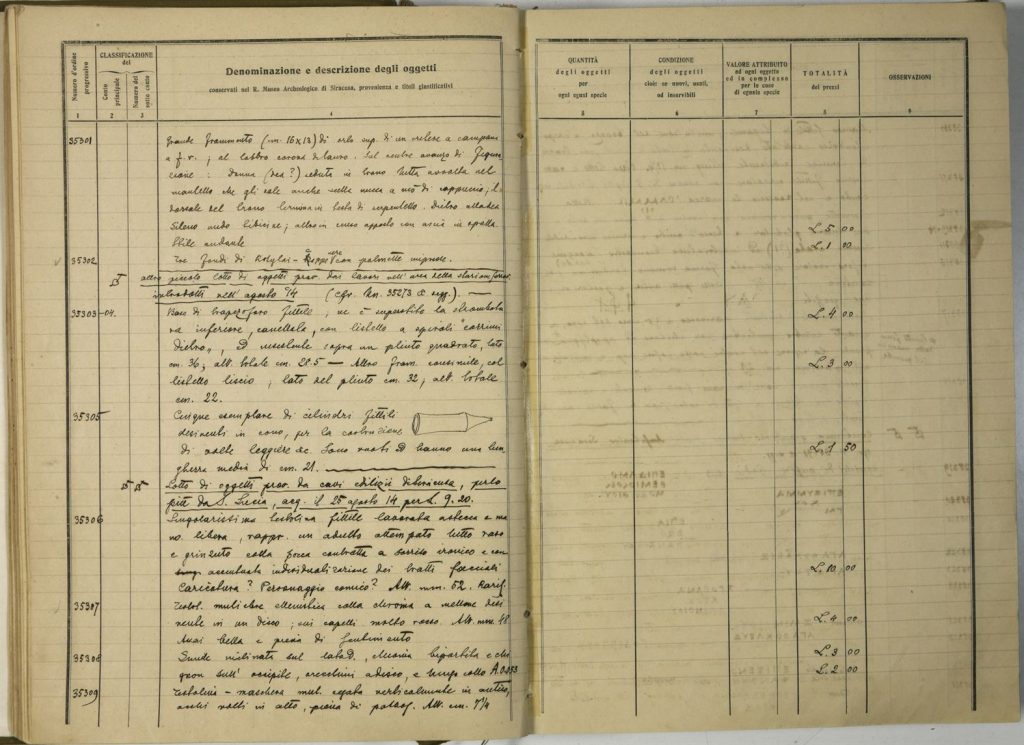 Numero d'ordine progressivo
CLASSIFICAZIONE del
Conto principale
Numero del sotto conto
Denominazione e descrizione degli oggetti
conservati nel R. Museo Archeologico di Siracusa, provenienza e titoli giustificativi
QUANTITÀ degli oggetti per ogni eguali specie
CONDIZIONE degli oggetti cioè: se nuovi, usati, od inservibili
VALORE ATTRIBUITO ad ogni oggetto ed in complesso per le cose di eguale specie
TOTALITÀ dei prezzi
OSSERVAZIONI
1 2 3 4 5 6 7 8 9
35301 Grande frammento (cm. 16x13) di orlo sup. di un cratere a campana
a f. r.; al labbro corona di lauro. Sul ventre avanzo di figura-
zione: donna (dea?) seduta in trono tutta avvolta nel
mantello che gli sale anche sulla nuca a mò di cappuccio; il
dorsale del trono termina in testa di serpentello. Dietro alla dea
Sileno nudo; altro in senso opposto con ascia in spalla
Stile andante L. 5 00
35302 Tre fondi di con palmette impresse. L. 1 00
altro piccolo lotto di oggetti prov. dai lavori nell'area della stazione
nell'agosto 914 (Cfr. Nn. 35273 e segg.).
35303-04. Base di fittile; ne è superstite la
ra inferiore, cannellata, con listello a spirali "corrimi
dietro", e resistente sopra un plinto quadrato, lato
cm. 36; alt. totale cm. 28.5 — Altro fram. consimile, col
listello liscio; lato del plinto cm. 32; alt. totale
cm. 22.
L. 4 00
L. 3 00
35305 Cinque esemplari di cilindri fittili
desinenti in cono, per la costruzione
di volte leggiere &c. Sono vuoti e hanno una lun
ghezza media di cm. 21. L. 1 50
Lotto di oggetti prov. da cavi edilizii di Siracusa, per lo
più da S. Lucia, acq. il 25 agosto 14 per L. 9.20.
35306 Singolarissima testolina fittile lavorata a stecca e ma
no libera, rappr. un adulto attempato tutto raso
e grinzuto colla bocca contratta a sorriso ironico e con
accentuata individualizzazione dei tratti facciali
Caricatura? Personaggio comico? Alt. mm. 52. Rariss. L. 10 00
35307 Testol. muliebre ellenistica colla chioma a mellone desi
nente in un disco; sui capelli molto rosso. Alt. mm. 48
Assai bella e piena di sentimento L. 4 00
35308 Simile inclinata sul lato D, chioma bipartita e chi
gnon sull'occipite, orecchini a disco, e lungo collo A. 0.053 L. 3 00
35309 Testolina-maschera mul. segata verticalmente in antico,
occhi volti in alto, piena di pathos. Alt. cm. 7¼ L. 2 00